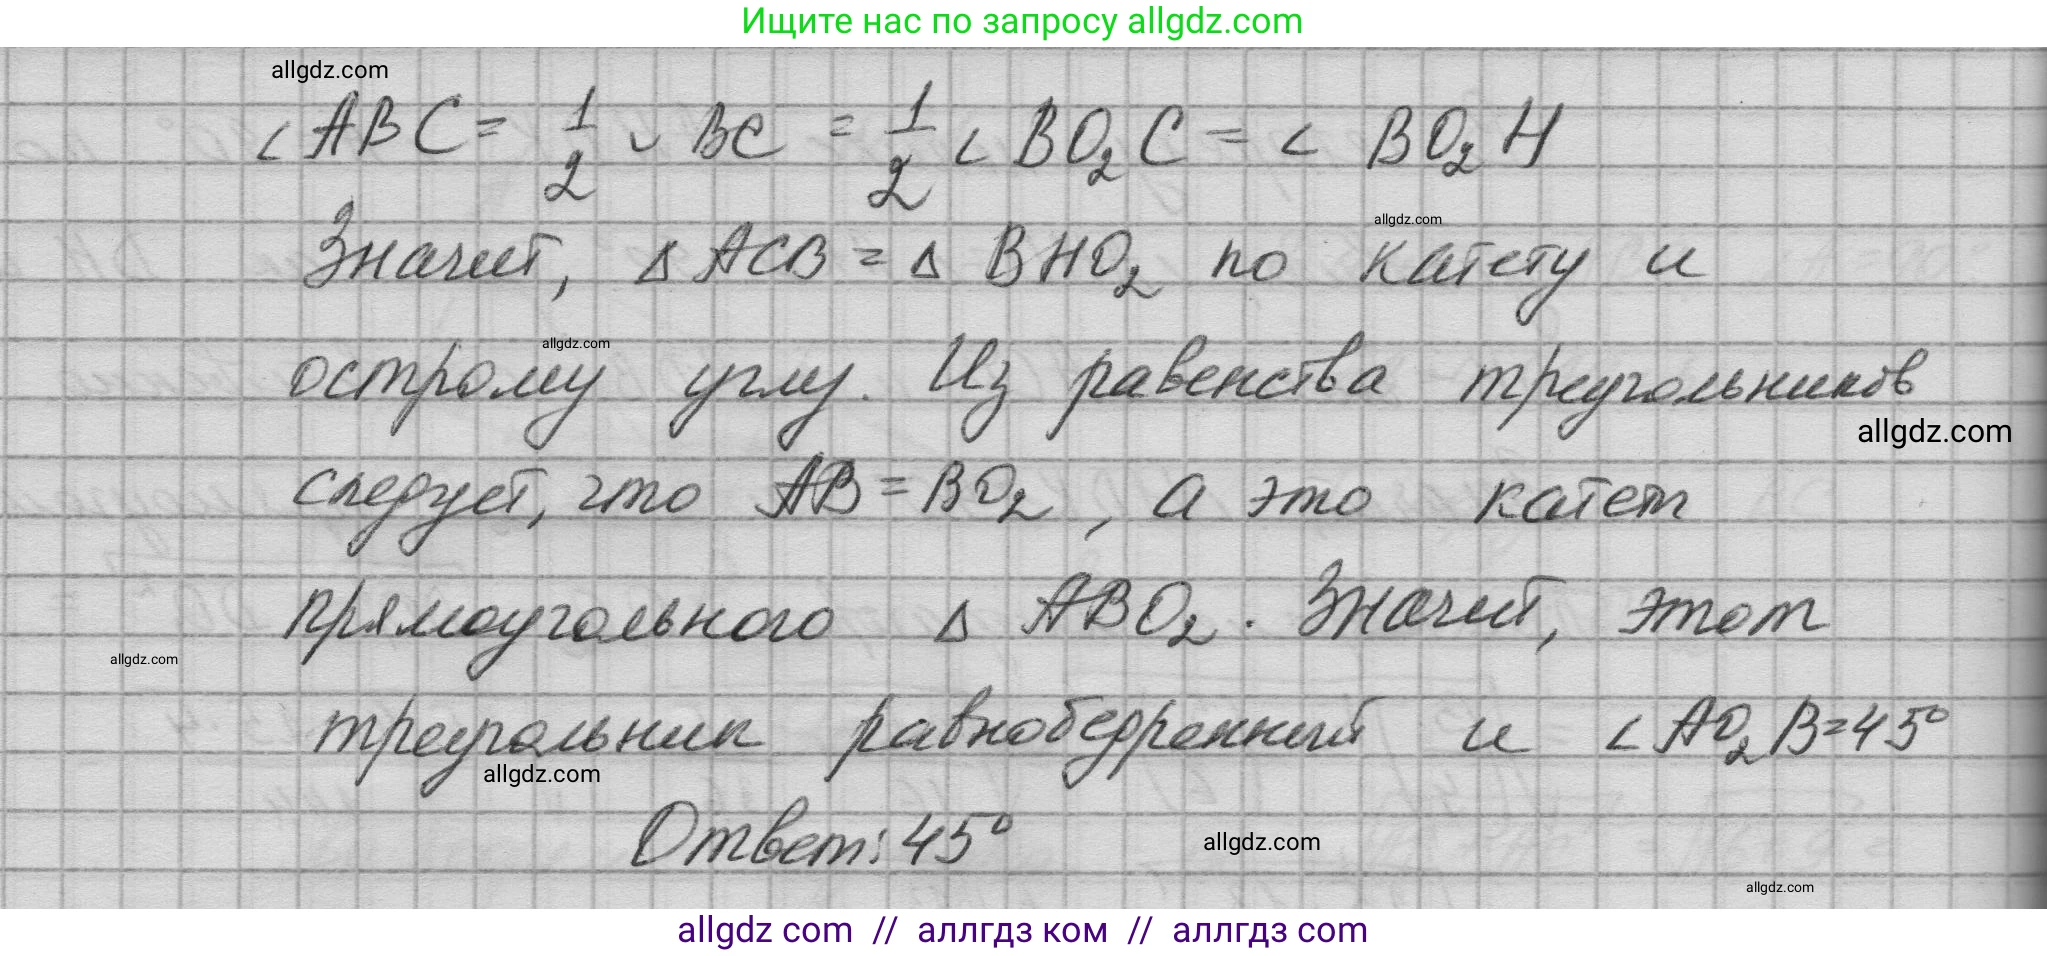 Ищите нас по запросу allgdz.com
allgdz.com
∠ ABC = 1/2 ◡ BC = 1/2 ∠ BO₂C = ∠ BO₂H
allgdz.com
Значит, Δ ACB = Δ BHO₂ по катету и
allgdz.com
острому углу. Из равенства треугольников
allgdz.com
следует, что AB = BO₂, а это катет
прямоугольного Δ ABO₂. Значит, этот
allgdz.com
треугольник равнобедренный и ∠ AO₂B = 45°
allgdz.com
Ответ: 45°
allgdz.com
allgdz.com
allgdz com // аллгдз ком // аллгдз com